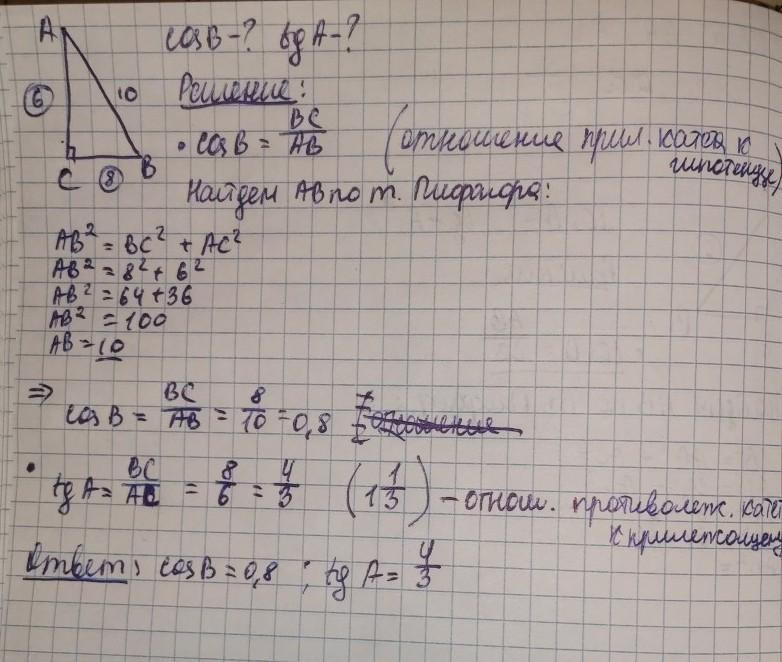 A
cos B - ? tg A - ?
6
10
Решение:
C
8
B
• cos B = BC/AB (отношение прил. катета к
гипотенузе)
Найдем AB по т. Пифагора:
AB² = BC² + AC²
AB² = 8² + 6²
AB² = 64 + 36
AB² = 100
AB = 10
⇒ cos B = BC/AB = 8/10 = 0,8
• tg A = BC/AC = 8/6 = 4/3 (1 1/3) – отнош. противолеж. катет
к прилежащему
Ответ: cos B = 0,8 ; tg A = 4/3